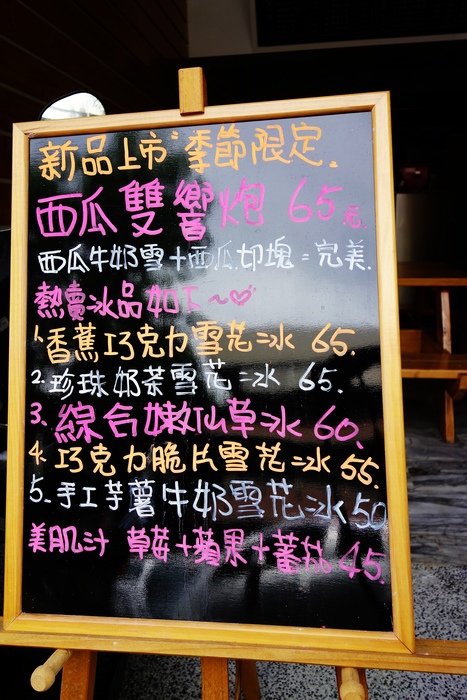 新品上市"季節限定.
西瓜雙響炮 65元.
西瓜牛奶雪+西瓜切塊=完美.
熱賣冰品如下~♡
1.香蕉巧克力雪花冰 65.
2.珍珠奶茶雪花冰 65.
3.綜合嫩仙草冰 60.
4.巧克力脆片雪花冰 55.
5.手工芋薯牛奶雪花冰 50
美肌汁 草莓+蘋果+蕃茄 45.